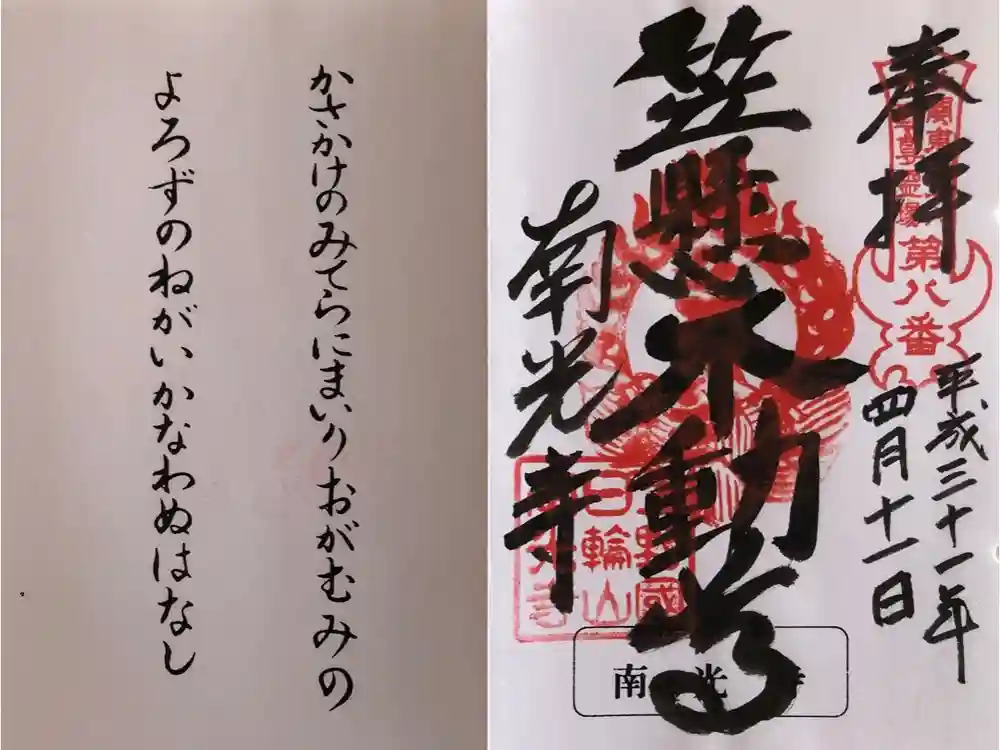 奉拝
第八番
平成三十一年
四月十一日
笠懸不動尊
野國
日輪山
南光寺
南光寺
かさかけのみてらにまいりおがむみの
よろずのねがいかなわぬはなし